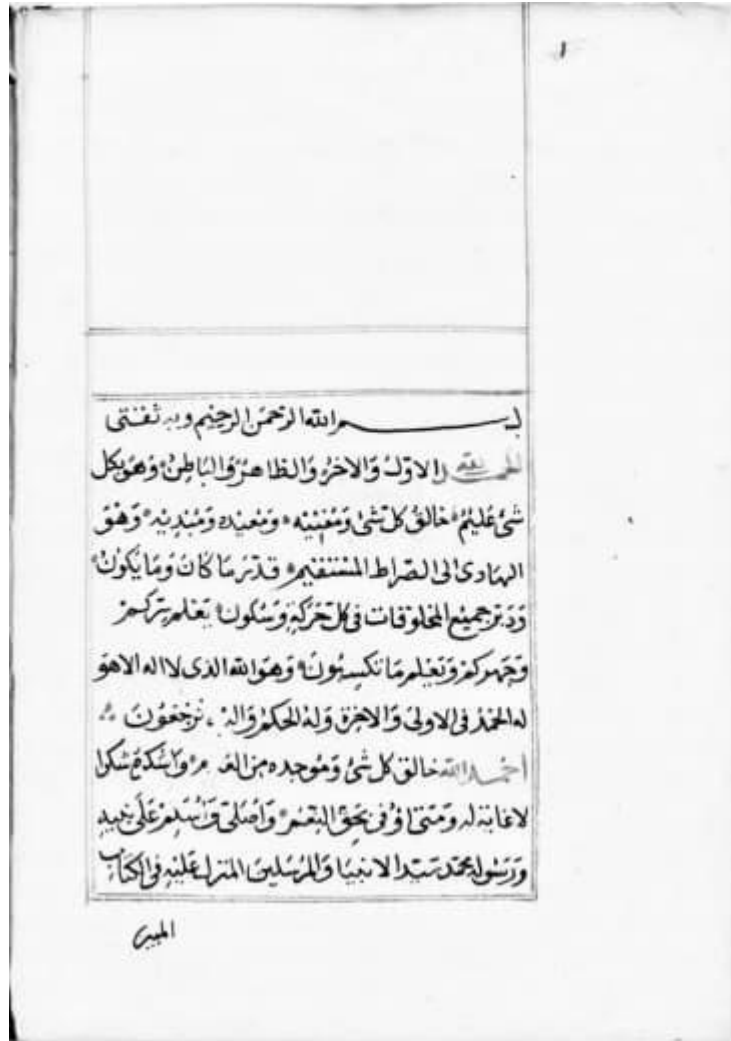 ١
بسم الله الرحمن الرحيم وبه ثقتي
الحمد لله الاول والاخر والظاهر والباطن وهو بكل
شئ عليم خالق كل شئ ومفنيه ومعيده ومبديه وهو
الهادى الى الصراط المستقيم قدر ما كان وما يكون
ودبر جميع المخلوقات فى كل حركة وسكون يعلم سركم
وجهركم ويعلم ما تكسبون وهو الله الذى لا اله الا هو
له الحمد فى الاولى والاخرة وله الحكم واليه ترجعون
احمد الله خالق كل شئ وموجده من العدم واشكره شكرا
لا غاية له ومتى اوفى بحق النعم واصلى واسلم على نبيه
ورسوله محمد سيد الانبيا والمرسلين المنزل عليه فى الكتاب
المبين